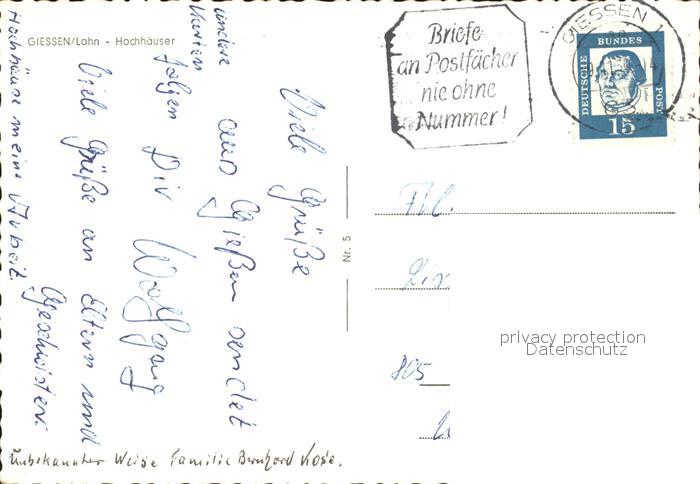 GIESSEN/Lahn - Hochhäuser
Viele Grüße
aus Gießen sendet
Dir Wolfgang
andere
Karten
folgen
Viele Grüße an Eltern und
Geschwister.
Hochhäuser meine Arbeit.
Unbekannter Weise Familie Bernhard Kose.
Nr. 5
Briefe
an Postfächer
nie ohne
Nummer!
GIESSEN 1
DEUTSCHE BUNDES POST
15
Frl.
805
privacy protection
Datenschutz